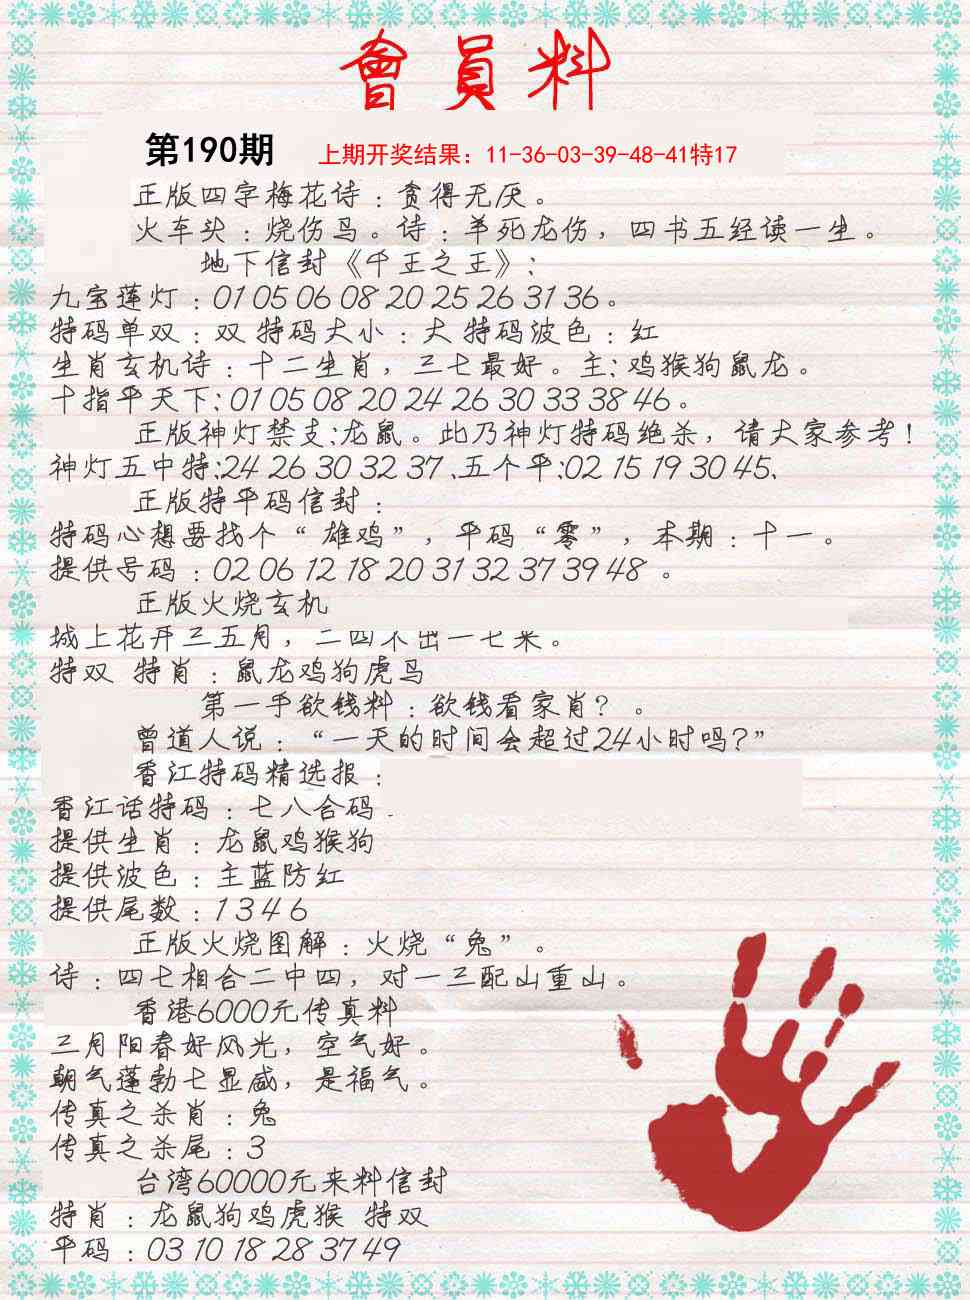 會員料
第190期 上期开奖结果：11-36-03-39-48-41特17
正版四字梅花诗：贪得无厌。
火车头：烧伤鸟。诗：羊死龙伤，四书五经读一生。
地下信封《千王之王》：
九宝莲灯：01 05 06 08 20 25 26 31 36。
特码单双：双 特码大小：大 特码波色：红
生肖玄机诗：十二生肖，三七最好。主：鸡猴狗鼠龙。
十指平天下：01 05 08 20 24 26 30 33 38 46。
正版神灯禁支：龙鼠。此乃神灯特码绝杀，请大家参考！
神灯五中特：24 26 30 32 37、五个平：02 15 19 30 45、
正版特平码信封：
特码心想要找个“雄鸡”，平码“零”，本期：十一。
提供号码：02 06 12 18 20 31 32 37 39 48 。
正版火烧玄机
城上花开三五月，二四不出一七来。
特双 特肖：鼠龙鸡狗虎马
第一手欲钱料：欲钱看家肖？。
曾道人说：“一天的时间会超过24小时吗？”
香江特码精选报：
香江话特码：七八合码．
提供生肖：龙鼠鸡猴狗
提供波色：主蓝防红
提供尾数：1 3 4 6
正版火烧图解：火烧“兔”。
诗：四七相合二中四，对一三配山重山。
香港6000元传真料
三月阳春好风光，空气好。
朝气蓬勃七显威，是福气。
传真之杀肖：兔
传真之杀尾：3
台湾60000元来料信封
特肖：龙鼠狗鸡虎猴 特双
平码：03 10 18 28 37 49